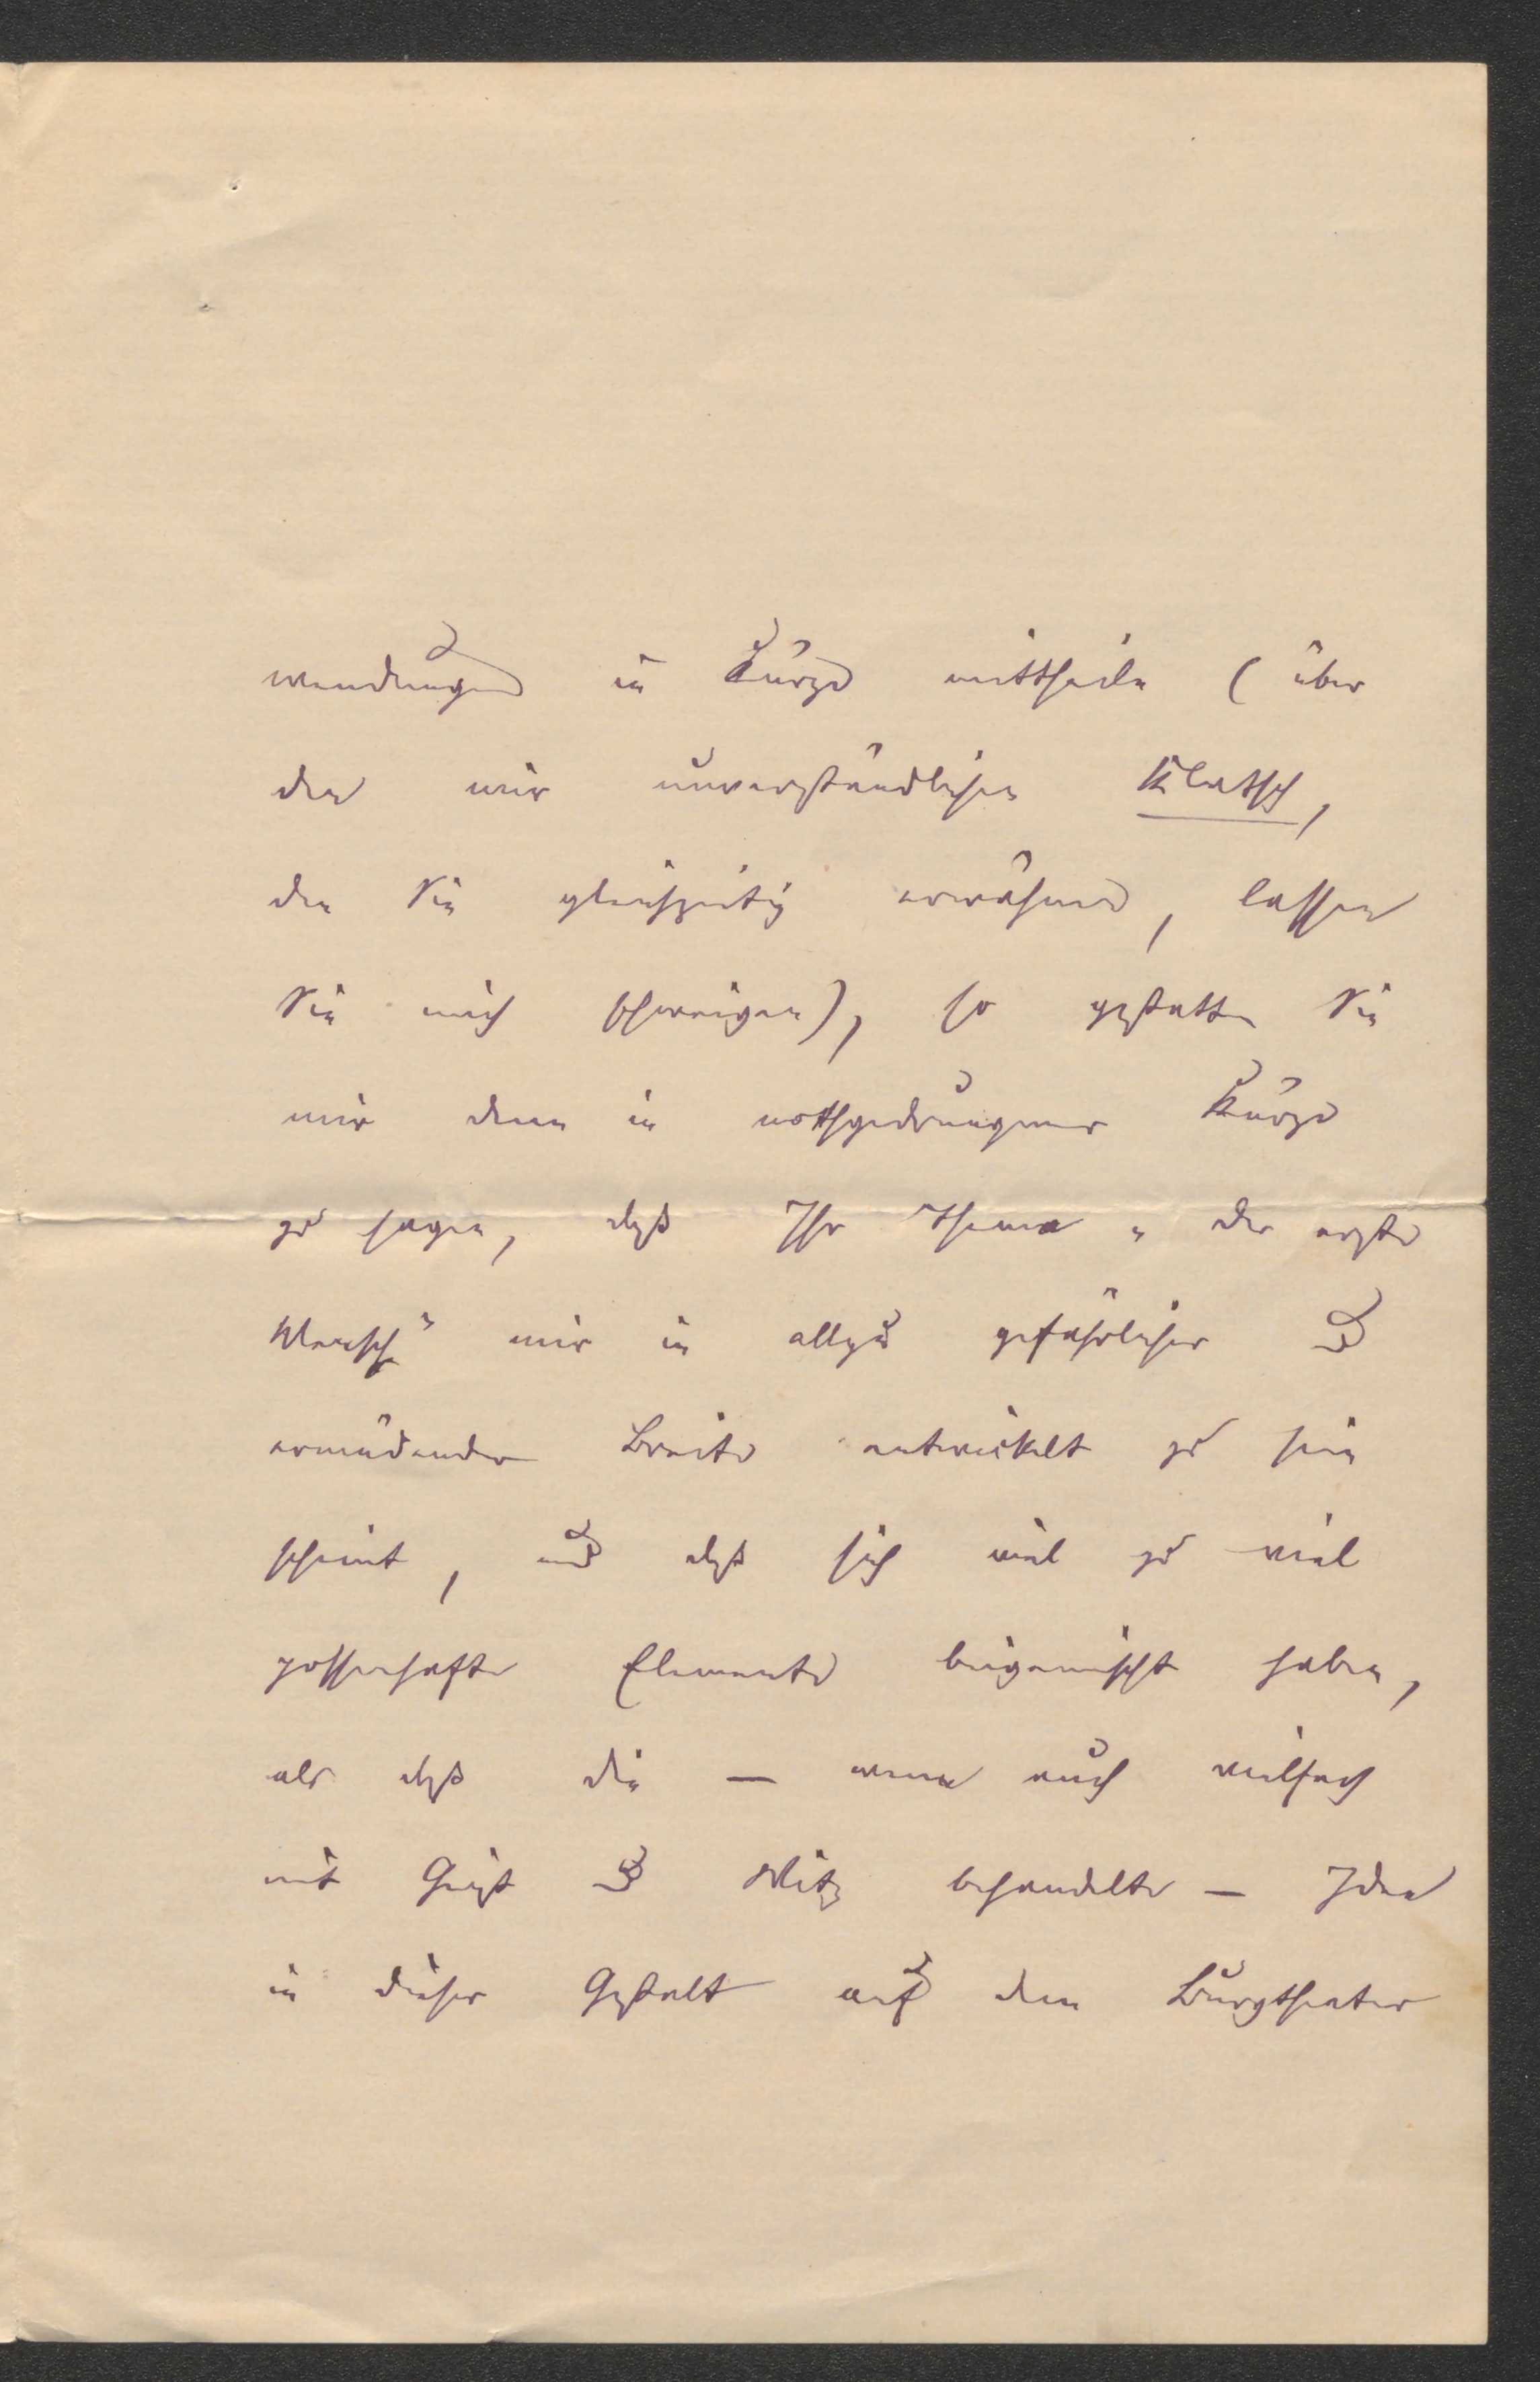 wendungen in Kürze mittheile (über
den mir unverständlichen Klatsch,
den Sie gleichzeitig erwähnen, lassen
Sie mich schweigen), so gestatten Sie
mir denn in nothgedrungener Kürze
zu sagen, daß Ihr Thema „der erste
Mensch“ mir in allzu gefährlicher &
ermüdender Breite entwickelt zu sein
scheint, und daß sich viel zu viel
possenhafte Elemente beigemischt haben,
als daß die — wenn auch vielfach
mit Geist & Witz behandelte — Idee
in dieser Gestalt auf dem Burgtheater